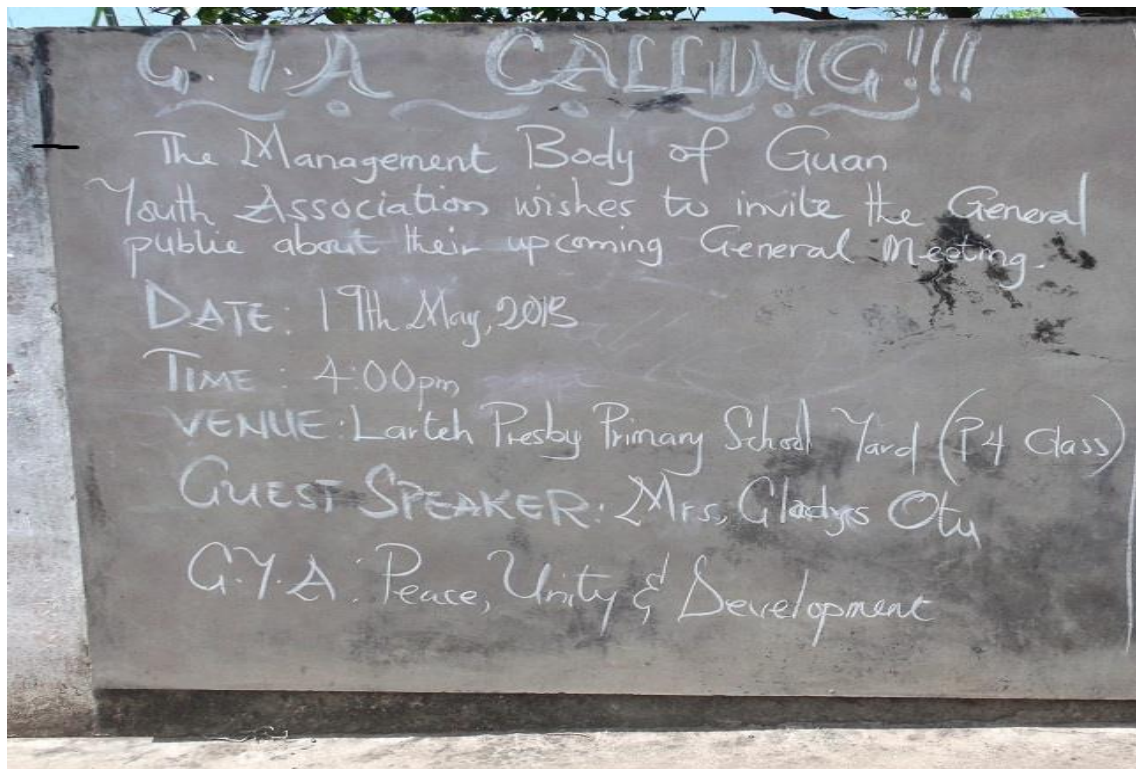 G.Y.A CALLING!!!
The Management Body of Guan
Youth Association wishes to invite the General
public about their upcoming General Meeting.
DATE: 19th May, 2015
TIME: 4:00pm
VENUE: Larteh Presby Primary School Yard (P4 Class)
GUEST SPEAKER: Mrs, Gladys Otu
G.Y.A: Peace, Unity & Development